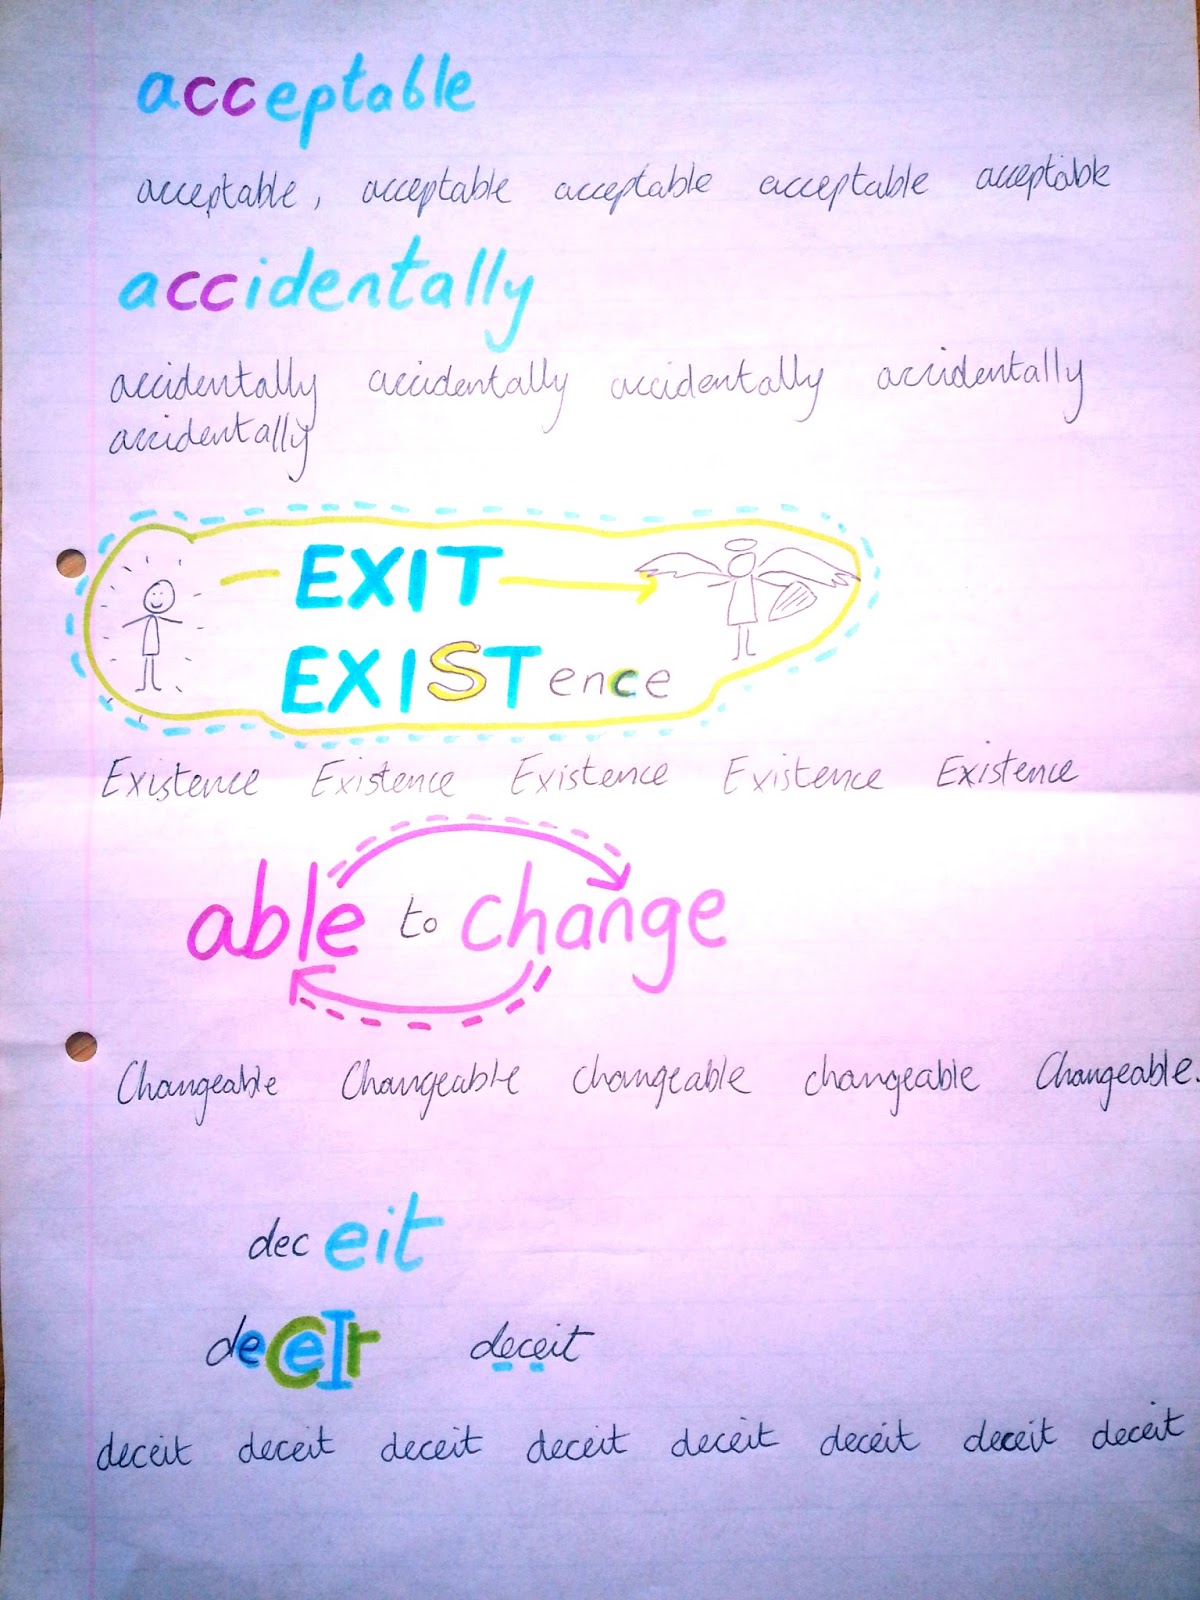 acceptable
acceptable, acceptable acceptable acceptable acceptable
accidentally
accidentally accidentally accidentally accidentally
accidentally
EXIT
EXISTence
Existence Existence Existence Existence Existence
able to change
Changeable Changeable changeable changeable Changeable.
deceit
deCeIt deceit
deceit deceit deceit deceit deceit deceit deceit deceit